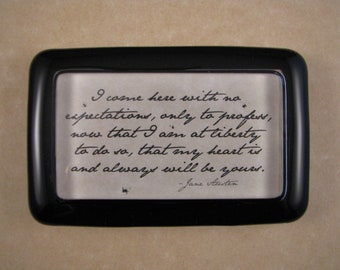 "I come here with no
expectations, only to profess,
now that I am at liberty
to do so, that my heart is
and always will be yours.
-Jane Austen